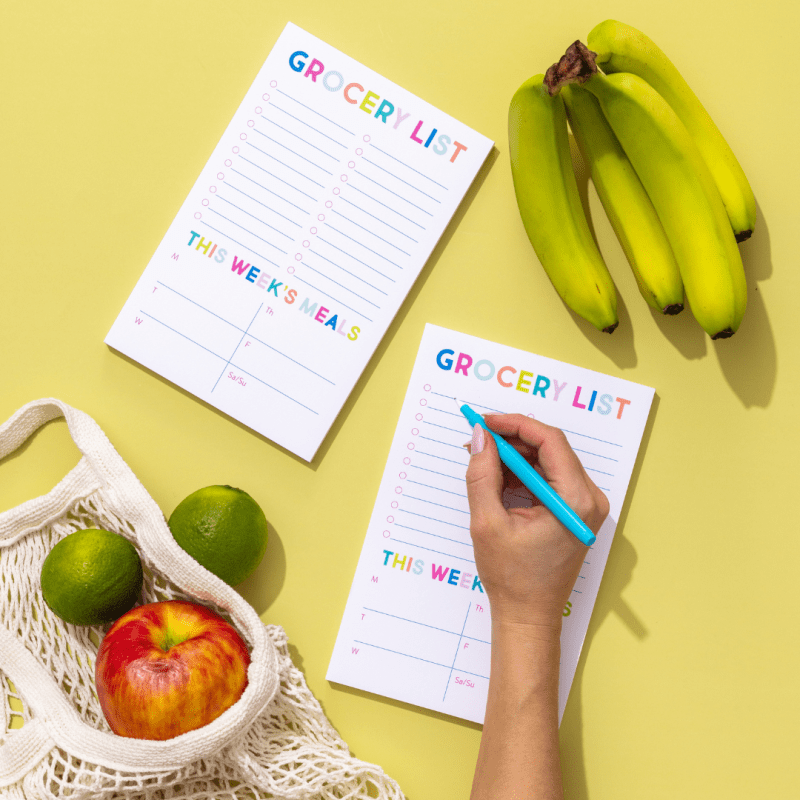 GROCERY LIST
THIS WEEK'S MEALS
M
Th
T
F
W
Sa/Su
GROCERY LIST
THIS WEEK
M
Th
T
F
W
Sa/Su